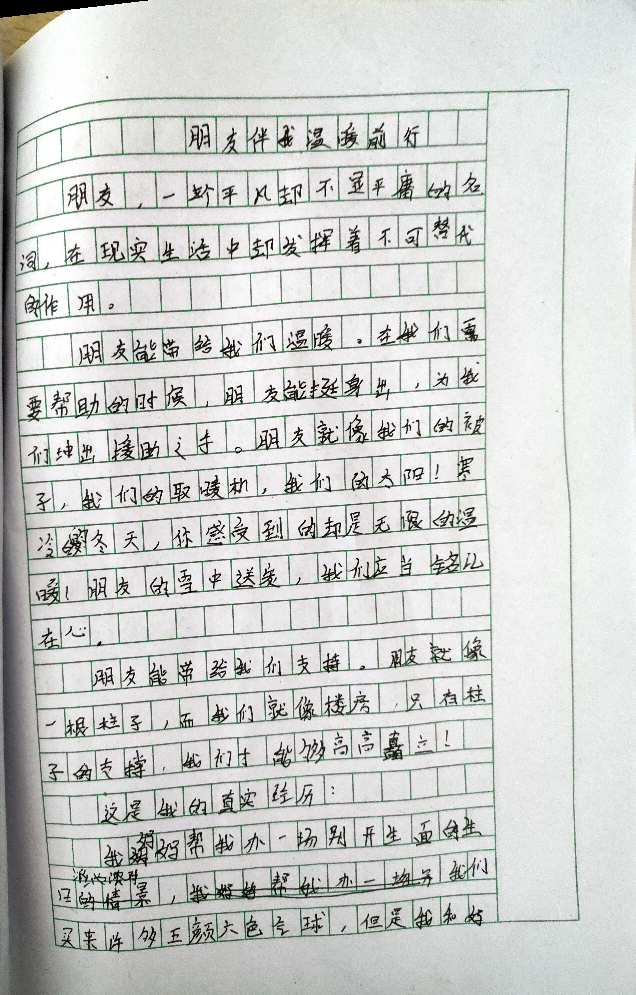 朋友伴我温暖前行
朋友，一个平凡却不显平庸的名
词，在现实生活中却发挥着不可替代
的作用。
朋友能带给我们温暖。在我们需
要帮助的时候，朋友能挺身出，为我
们绅出援助之手。朋友就像我们的被
子，我们的取暖机，我们的太阳！寒
冷的冬天，你感受到的却是无限的温
暖！朋友的雪中送炭，我们应当铭记
在心。
朋友能带给我们支持。朋友就像
一根柱子，而我们就像楼房，只有柱
子的支撑，我们才能够高高矗立！
这是我的真实经历：
我好好帮我办一场别开生面的生
日的情景，我们
买来许多五颜六色气球，但是我和好